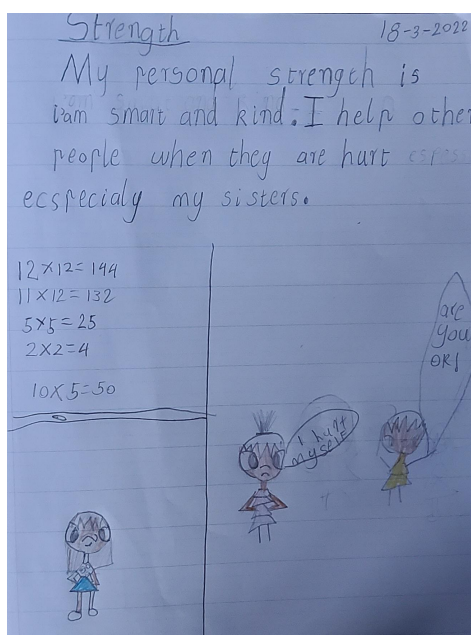 Strength
18-3-2022
My personal strength is
i'am smart and kind. I help other
people when they are hurt
ecspecialy my sisters.
12×12=144
11×12=132
5×5=25
2×2=4
10×5=50
are
you
I hurt
my self